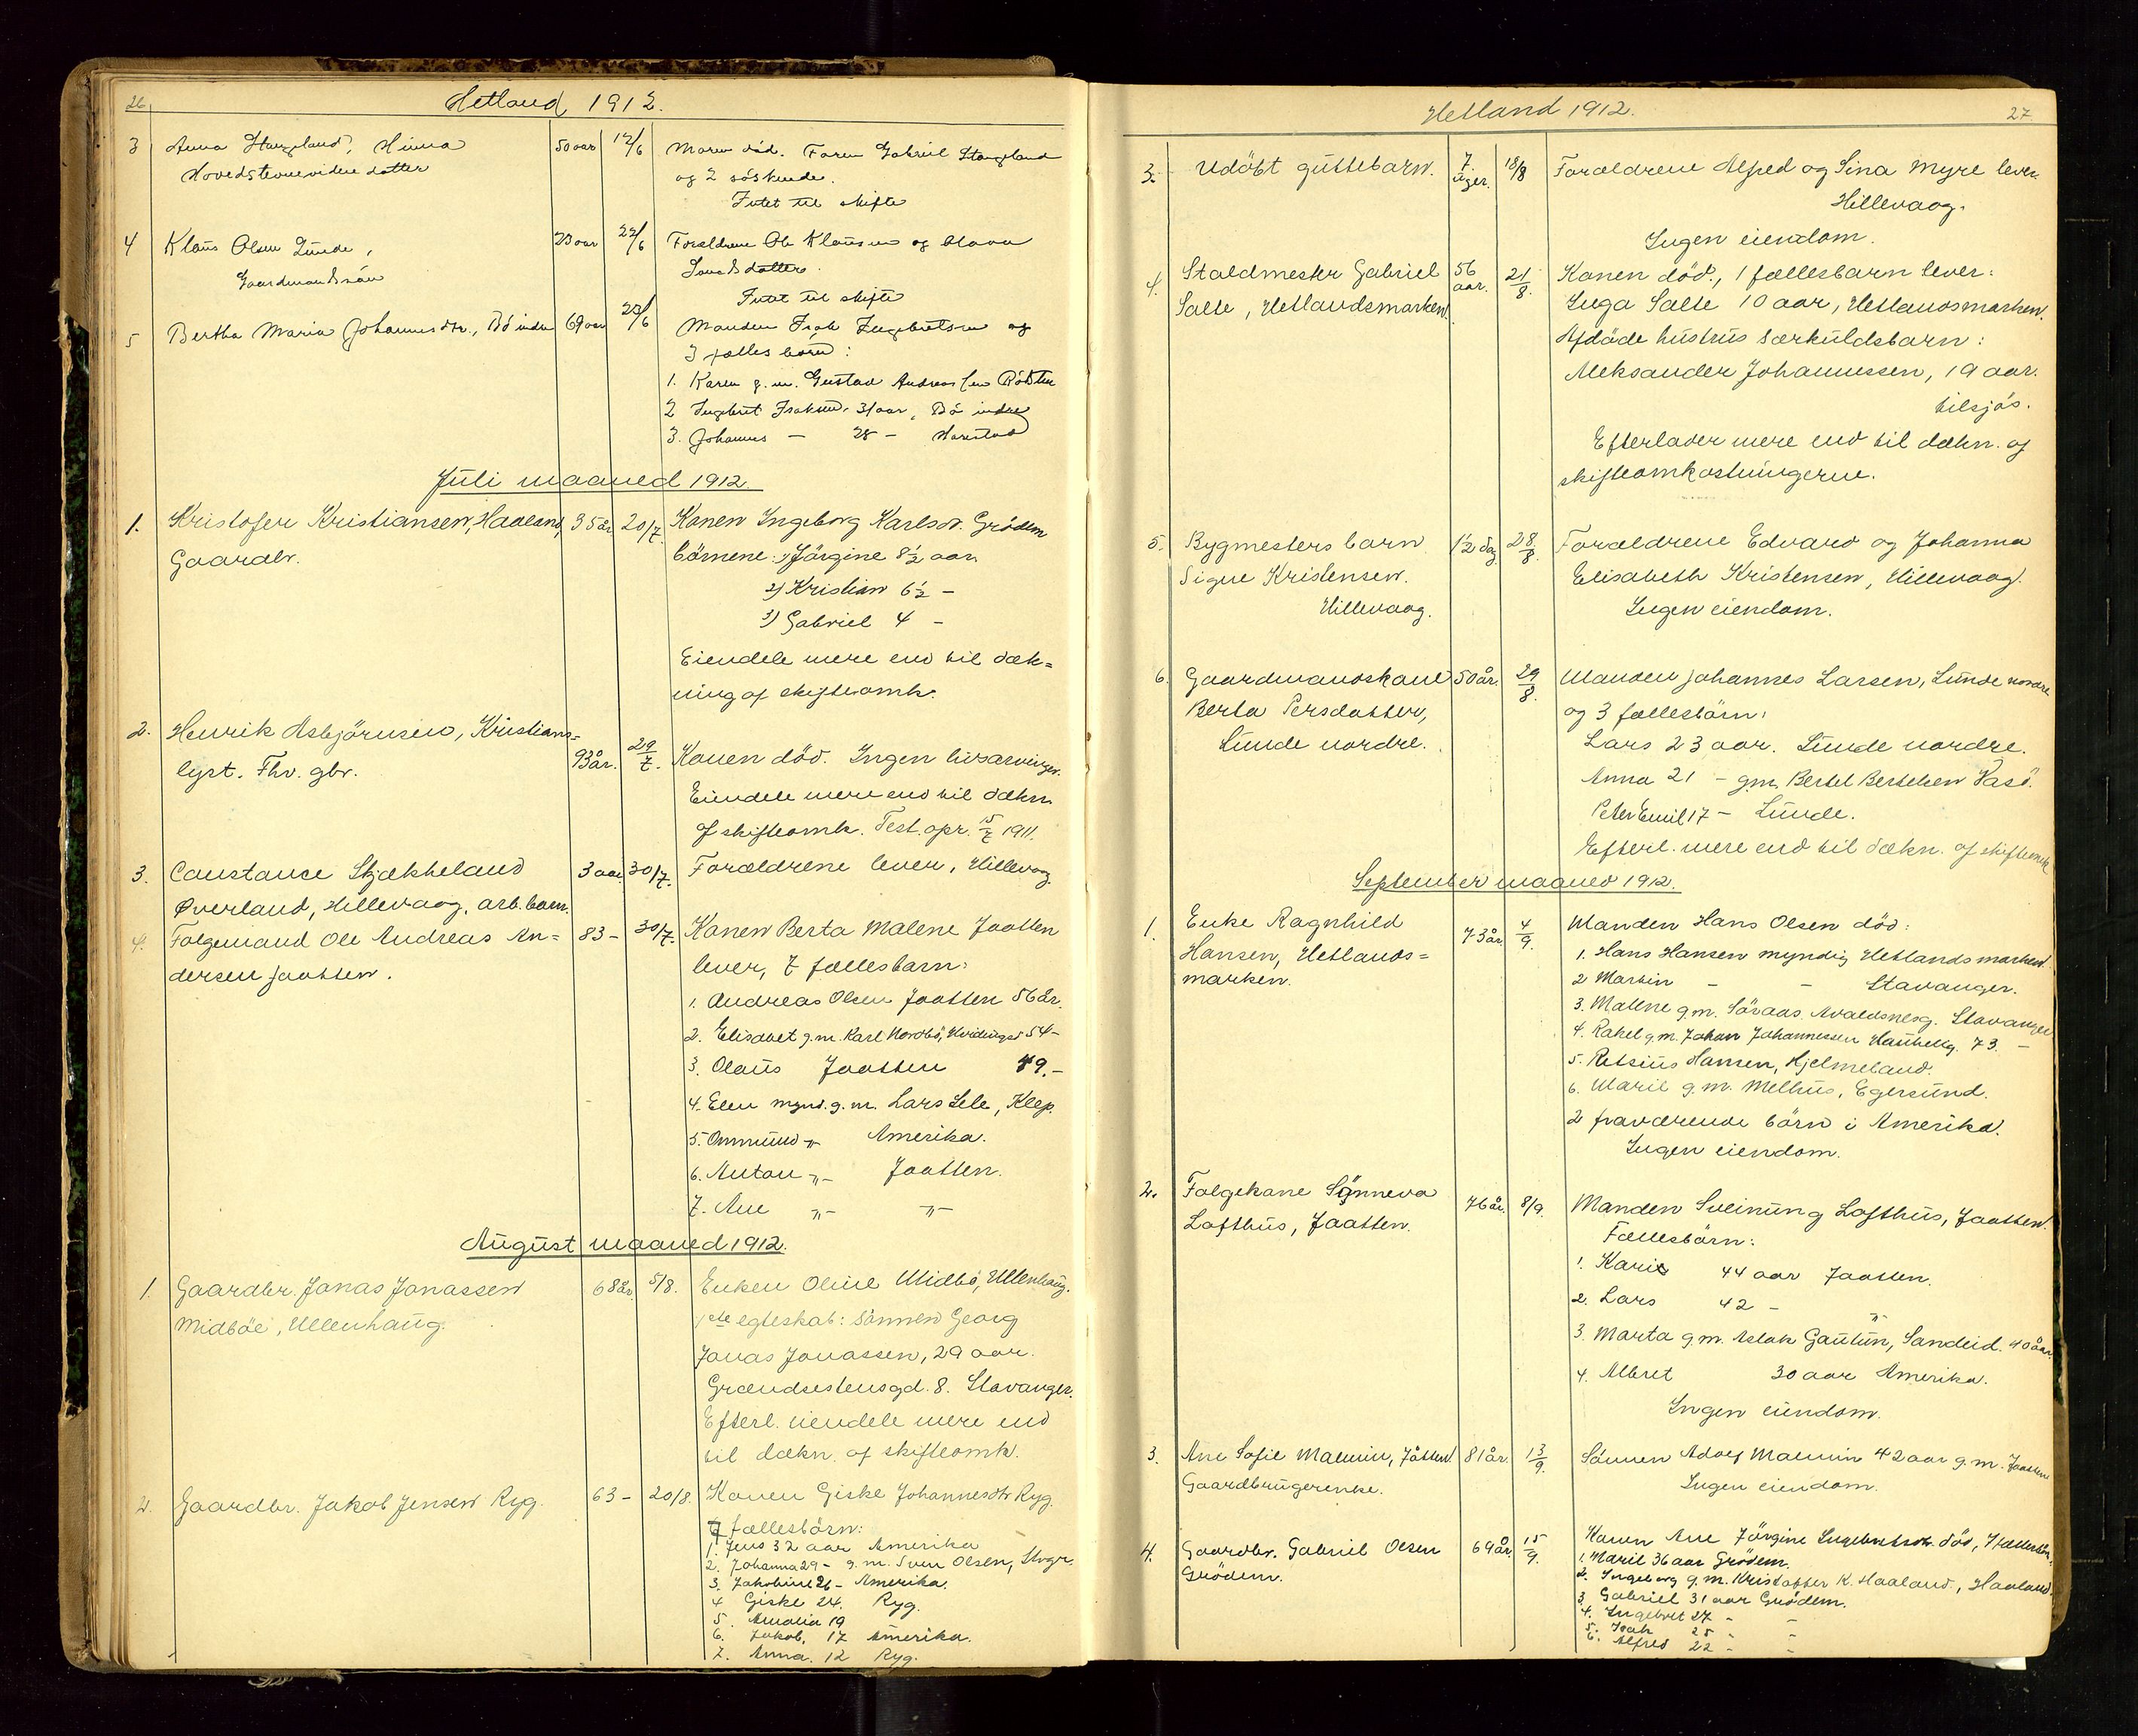 26
Hetland 1912.
3 Anna Stangeland, Hinna 50 aar 12/6 Moren død. Faren Gabriel Stangeland
datter og 2 søskende.
Intet til skifte
4 Klaus Olsen Lunde, 23 aar 22/6 Forældrene Ole Klausen og
Gaardmandssøn
Intet til skifte
5 Bertha Maria Johannesdtr., Bø indre 69 aar 23/6 Manden Isak Ingebretsen og
3 fælles børn:
1. Karen g.m. Gustav Andreassen
2 Ingebret Isaksen 31 aar, Bø indre
3. Johannes — 28 — Harestad
Juli maaned 1912.
1. Kristofer Kristiansen, Haaland, 35 år 20/7. Konen Ingeborg Karlsdr. Grødem
Gaardbr. børnene: 1) Jørgine 8½ aar
2) Kristian 6½ —
3) Gabriel 4 —
Eiendele mere end til dæk=
ning af skifteomk.
2. Henrik Asbjørnsen, Kristians=
lyst. Fhv. gbr. 93 år. 29/7. Konen død. Ingen livsarvinger.
Eiendele mere end til dækn.
af skifteomk. Test. opr. 15/7 1911.
3. Constance Skjækheland 3 aar 30/7. Forældrene lever, Hillevaag.
Øverland, Hillevaag, arb. barn.
4. Følgemand Ole Andreas An= 83 — 30/7. Konen Berta Malene Jaatten
dersen Jaatten. lever, 7 fællesbarn:
1. Andreas Olsen Jaatten 56 år.
2. Elisabet g.m. Karl Nordbø, Hvidingsø 54 —
3. Olaus Jaatten 49. —
4. Elen mynd. g.m. Lars Lele, Klep.
5. Ommund —"— Amerika.
6. Anton —"— Jaatten.
7. Ane —"— —"—
August maaned 1912.
1. Gaardbr. Jonas Jonassen 68 år 5/8. Enken Oline Midbø, Ullenhaug.
Midbøe, Ullenhaug. 1ste egteskab: Sønnen Georg
Jonas Jonassen, 29 aar.
Grændsestensgd. 8. Stavanger.
Efterl. eiendele mere end
til dækn. af skifteomk.
2. Gaardbr. Jakob Jensen Ryg. 63 — 20/8. Konen Giske Johannesdtr Ryg.
7 fællesbørn:
1. Jens 32 aar Amerika
2. Johanna 29 — g.m. Sven Olsen, Stvgr.
3. Jakobine 26 — Amerika.
4 Giske 24. Ryg.
5. Amalia 19
6. Jakob. 17 Amerika.
7. Anna. 12 Ryg.
Hetland 1912.
27.
3. Udøbt guttebarn. 7. uger. 18/8 Forældrene Alfred og Sina Myre lever.
Hillevaag.
Ingen eiendom.
4. Staldmester Gabriel 56 aar. 21/8. Konen død, 1 fællesbarn lever:
Salte, Hetlandsmarken. Inga Salte 10 aar, Hetlandsmarken.
Afdøde hustrus særkuldsbarn:
Aleksander Johannessen, 19 aar.
tilsjøs.
Efterlader mere end til dækn. af
skifteomkostningerne.
5. Bygmesters barn 1½ dag 28/8. Forældrene Edvard og Johanna
Signe Kristensen. Elisabeth Kristensen, Hillevaag.
Hillevaag. Ingen eiendom.
6. Gaardmandskone 50 år. 29/8. Manden Johannes Larsen, Lunde nordre
Berta Persdatter, og 3 fællesbørn:
Lunde nordre. Lars 23 aar. Lunde nordre.
Anna 21 — g.m. Bertel Bertelsen Vasø.
Peter Emil 17 — Lunde.
Efterl. mere end til dækn. af skifteomk
September maaned 1912.
1. Enke Ragnhild 73 år. 4/9. Manden Hans Olsen død:
Hansen, Hetlands= 1. Hans Hansen myndig Hetlandsmarken.
marken. 2 Martin — — Stavanger.
3. Malene g.m. Søraas, Avaldsnesg. Stavanger
4. Rakel g.m. Johan Johannessen Haukelig. 73. —
5. Retsius Hansen, Hjelmeland.
6. Maril g.m. Melhus, Egersund.
2 fraværende børn i Amerika.
Ingen eiendom.
2. Følgekone Sønneva 76 år. 8/9. Manden Sveinung Lofthus, Jaatten.
Lofthus, Jaatten. Fællesbørn:
1. Kari 44 aar Jaatten.
2. Lars 42 — "
3. Marta g.m. Aslak Gautun, Sandeid. 40 aar.
4. Albret 30 aar Amerika.
Ingen eiendom.
3. Ane Sofie Malmin, Jåtten. 81 år. 13/9. Sønnen Adolf Malmin 42 aar g.m. Jaatten
Gaardbrugerenke. Ingen eiendom.
4. Gaardbr. Gabriel Olsen 69 år 15/9. Konen Ane Jørgine Ingebretsdtr. død,
Grødem. 1. Maril 36 aar Grødem.
2. Ingeborg g.m. Kristoffer K. Haaland, Haaland.
3. Gabriel 31 aar Grødem.
4. Ingebret 27 - -
5. Isak 25 - -
6. Alfred 22 - -